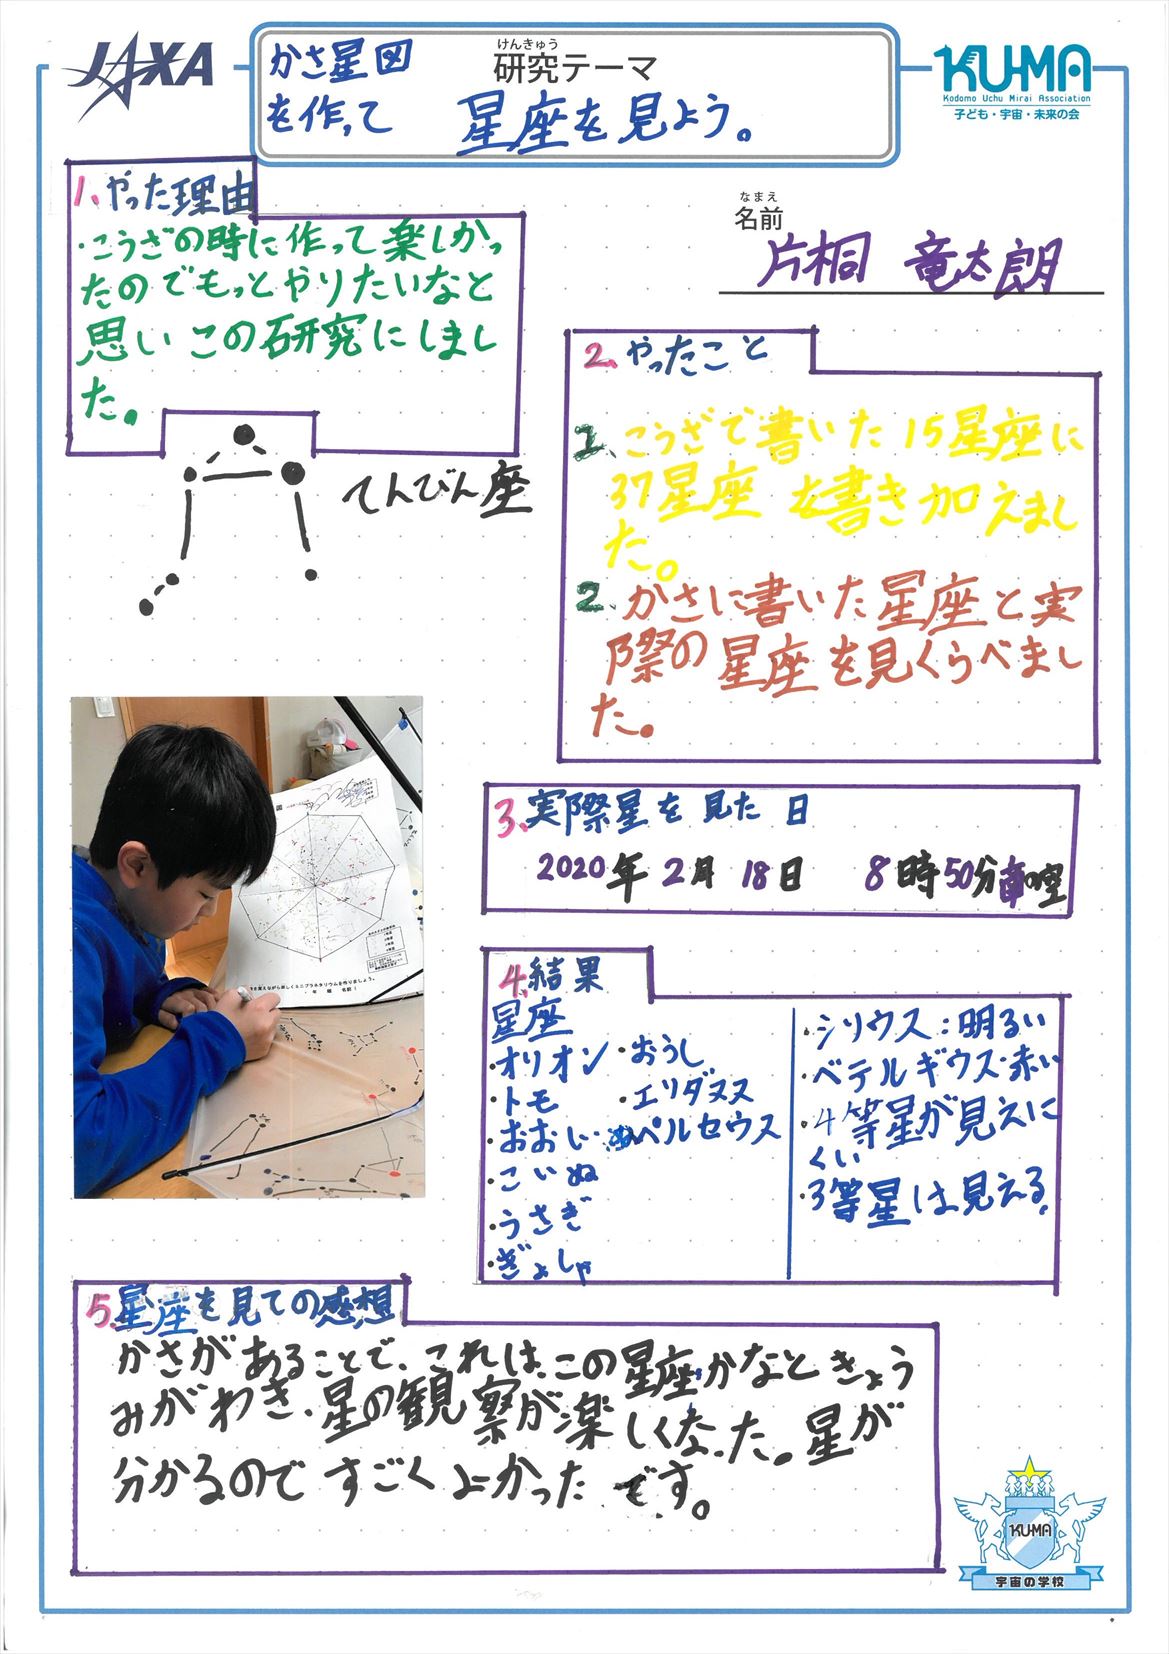 JAXA
かさ星図
を作って
けんきゅう
研究テーマ
星座を見よう。
KU-MA
Kodomo Uchu Mirai Association
子ども・宇宙・未来の会
1.やった理由
・こうざの時に作って楽しかっ
たのでもっとやりたいなと
思いこの研究にしまし
た。
なまえ
名前
片桐 竜太朗
てんびん座
2.やったこと
1.こうざで書いた15星座に
37星座を書き加えまし
た。
2.かさに書いた星座と実
際の星座を見くらべまし
た。
3.実際星を見た日
2020年2月18日 8時50分
の空
4.結果
星座
・オリオン
・トモ
・おおいぬ
・こいぬ
・うさぎ
・ぎょしゃ
・おうし
・エリダヌス
・ペルセウス
・シリウス:明るい
・ベテルギウス:赤い
・4等星が見えに
くい
・3等星は見える。
5.星座を見ての感想
かさがあることで、これは、この星座かなときょう
みがわき、星の観察が楽しくなった。星が
分かるのですごくよかったです。
KU-MA
宇宙の学校